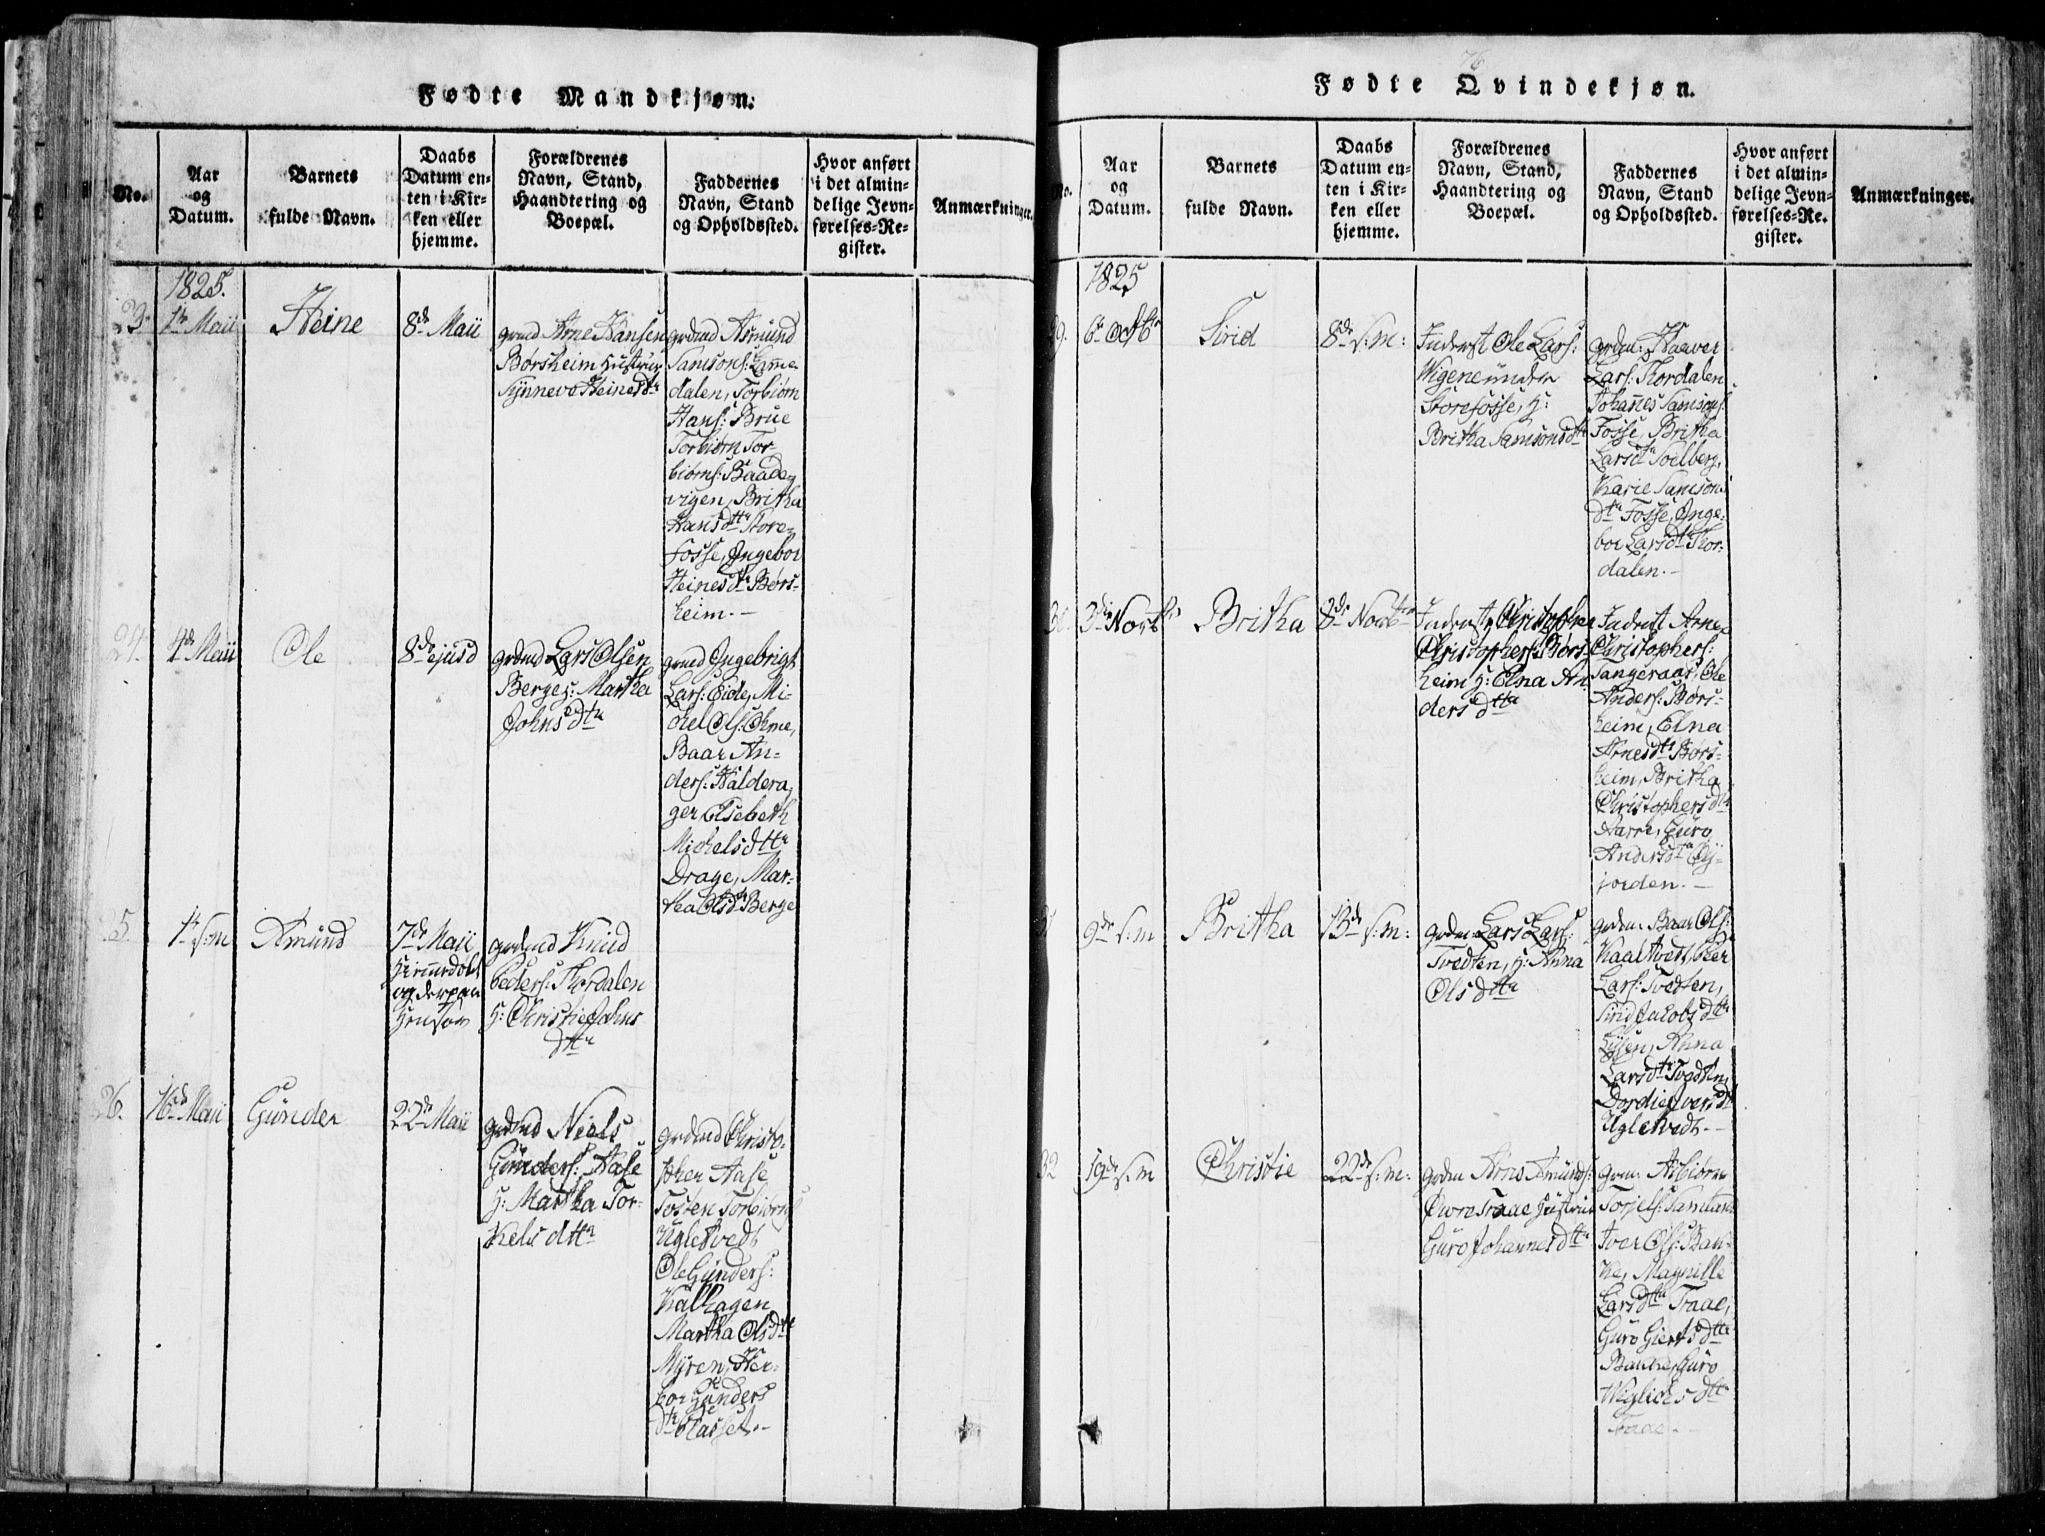 Fødte Mandkjøn.
No.
Aar
og
Datum.
Barnets
fulde Navn.
Daabs
Datum en-
ten i Kir-
ken eller
hjemme.
Forældrenes
Navn, Stand,
Haandtering og
Boepæl.
Faddernes
Navn, Stand
og Opholdssted.
Hvor anført
i det almin-
delige Jevn-
førelses-Re-
gister.
Anmærkninger.
1825.
23.
1te Maii
Heine
8de Maii
grmd Arne Hansen
Børsheim Hustrue
Synneve Heinesdtr
grdmd Asmund
Samsons: Lamme
dalen, Torbiørn
Hans: Brue
Torbiørn Tor
biørns: Baade
vigen, Britha
Hansdtr Store
Fosse, Ingebor
Heinesdtr Børs-
heim.-
24.
4de Maii
Ole
8de ejusd
grdmd Lars Olsen
Berge H: Martha
Johnsdtr
grmd Ingebrigt
Lars: Eide, Mi-
chel Ols: Ohme,
Baar An-
ders: Haldera
ger Elsebeth
Michelsdtr
Drage, Mar-
tha Olsdtr Berge
5.
1te s:m
Amund
7de Maii
Hiemedøbt
og der paa
grdmd Knud
Peders: Skordalen
H: Christie Johns
dtr
26.
16de Maii
Gunder
22de Maii
grdmd Niels
Gunders: Aase
H: Martha Tor-
kelsdtr
grdmd Christo-
pher Aase
Tosten Torbiørns:
Ugletvedt
Ole Gunders:
Kalhagen
Martha Olsdtr
Myren, Her-
bor Gunders
dtr
76
Fødte Qvindekjøn.
No.
Aar
og
Datum.
Barnets
fulde Navn.
Daabs
Datum en-
ten i Kir-
ken eller
hjemme.
Forældrenes
Navn, Stand,
Haandtering og
Boepæl.
Faddernes
Navn, Stand
og Opholdssted.
Hvor anført
i det almin-
delige Jevn-
førelses-Re-
gister.
Anmærkninger.
1825
29.
6te Octbr
Sirid
8de s:m:
Inderst Ole Lars:
Wigene under
Storefosse, H:
Britha Samsonsdtr
grdm: Haaver
Lars: Skordalen
Johannes Samsons:
Fosse, Britha
Larsdtr Soelberg,
Karie Samsons
dtr Fosse, Inge-
bor Larsdtr Skor-
dalen.-
30.
3die Novbr
Britha
8de Novbr
Inderst Christopher
Christophers: Børs
heim H: Elna An
dersdtr
Inderst Arne
Christophers:
Tangeraas, Ole
Anders: Børs-
heim, Elna
Arnesdtr Børs-
heim, Britha
Christophersdtr
Aarre, Guro
Andersdtr Øy-
jorden.-
31
9de s:m
Britha
13de s:m:
grdm Lars Lars:
Tvedten, H: Anna
Olsdtr
grdm. Baar Ols:
Kaaltvedt, Peer
Lars: Tvedten,
Sirid Jacobsdtr
Lyssen, Anna
Larsdtr Tvedten,
Dordie Iversdtr
Ugletvedt.-
32
19de s:m
Christie
22de s:m:
grdm Arne Amunds:
Øvre Traae Hustrue
Guro Johannesdtr
grm: Asbiørn
Torjels: Samland
Iver Ols: Ban-
ke, Magnille
Larsdtr Traae,
Guro Giertsdtr
Banke, Guro
Wiglichsdtr
Traae.-